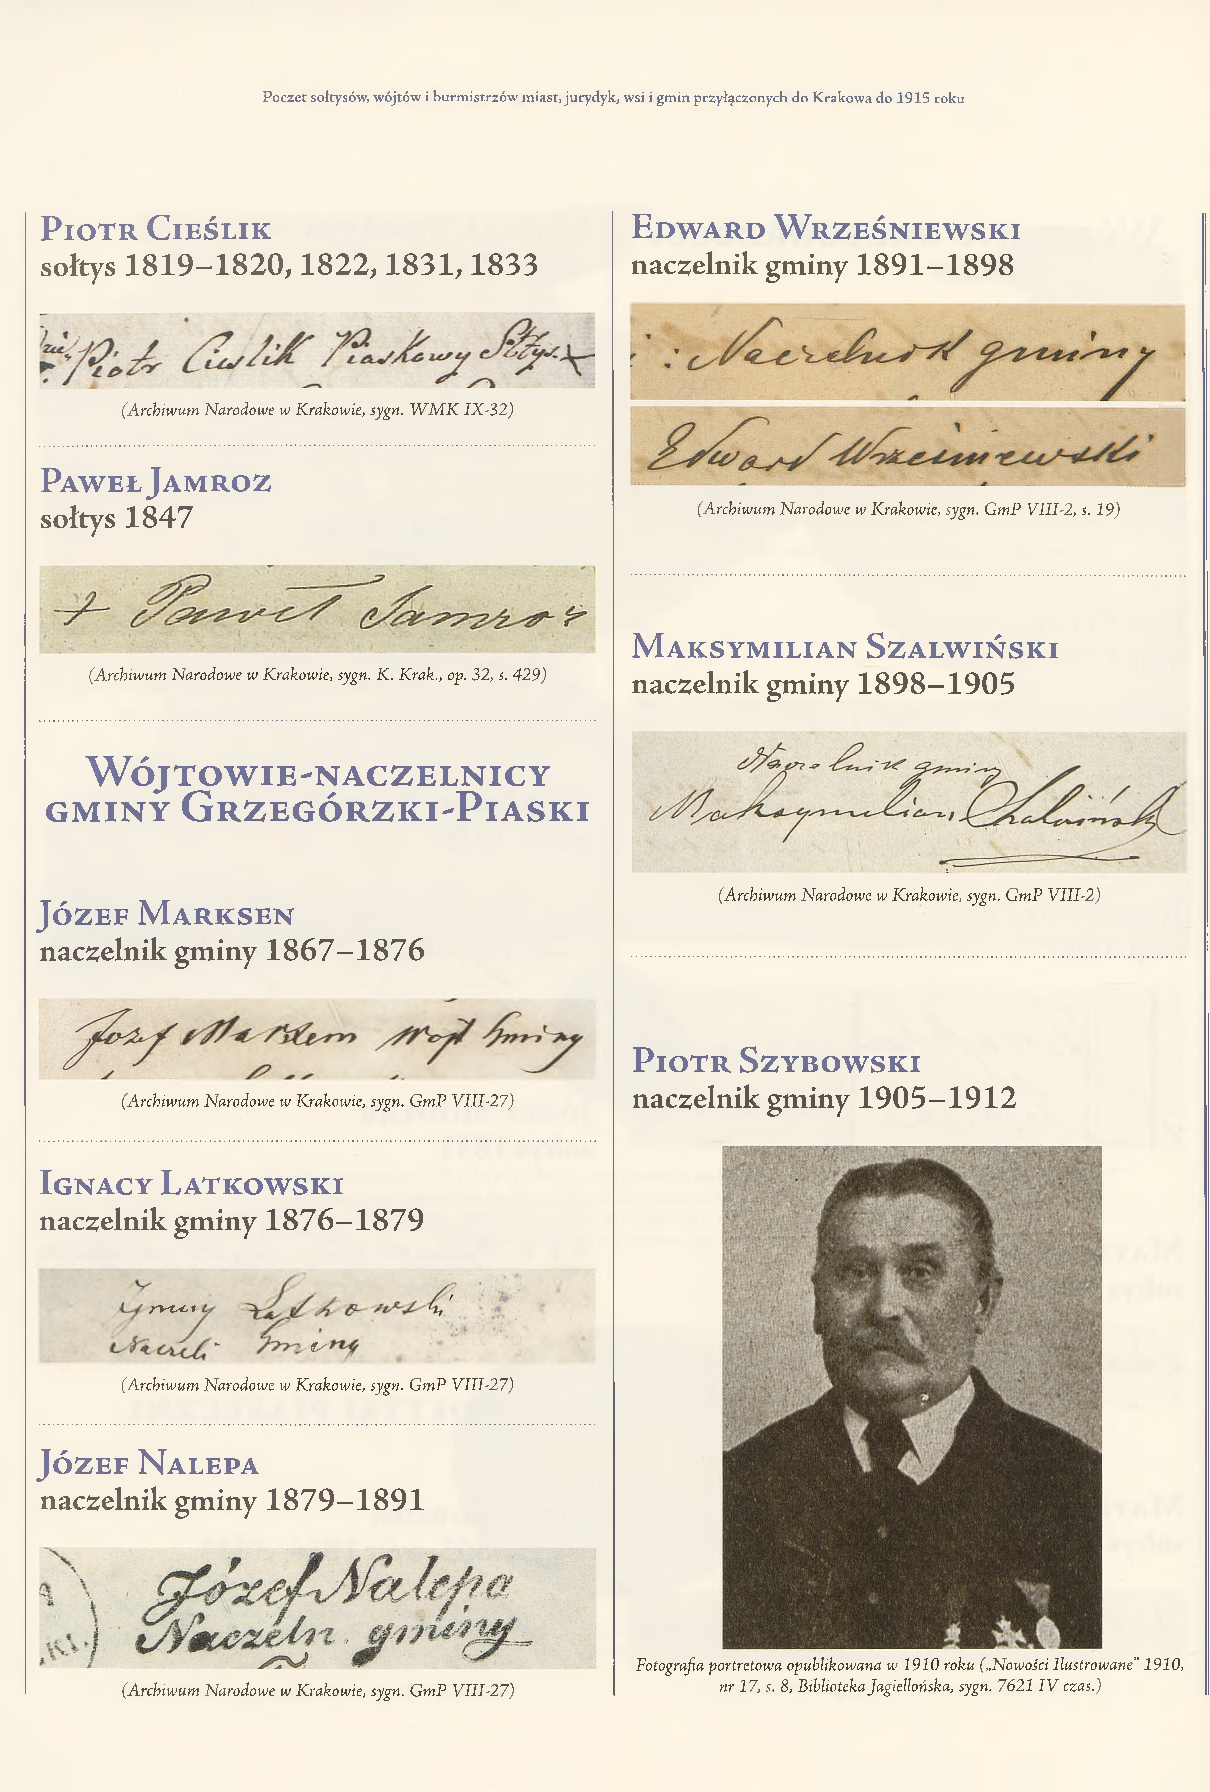 Poczet sołtysów, wójtów i burmistrzów miast, jurydyk, wsi i gmin przyłączonych do Krakowa do 1915 roku
Piotr Cieślik
sołtys 1819–1820, 1822, 1831, 1833
Piotr Cieslik Piaskowy Sołtys X
(Archiwum Narodowe w Krakowie, sygn. WMK IX-32)
Paweł Jamroz
sołtys 1847
+ Paweł Jamroz
(Archiwum Narodowe w Krakowie, sygn. K. Krak., op. 32, s. 429)
Wójtowie-naczelnicy
gminy Grzegórzki-Piaski
Józef Marksen
naczelnik gminy 1867–1876
Jozef Marksem Wojt Gminy
(Archiwum Narodowe w Krakowie, sygn. GmP VIII-27)
Ignacy Latkowski
naczelnik gminy 1876–1879
Ignacy Latkowski
Naczeli Gminy
(Archiwum Narodowe w Krakowie, sygn. GmP VIII-27)
Józef Nalepa
naczelnik gminy 1879–1891
Józef Nalepa
Naczeln. gminy
(Archiwum Narodowe w Krakowie, sygn. GmP VIII-27)
Edward Wrześniewski
naczelnik gminy 1891–1898
Naczelnik gminy
Edward Wrześniewski
(Archiwum Narodowe w Krakowie, sygn. GmP VIII-2, s. 19)
Maksymilian Szalwiński
naczelnik gminy 1898–1905
Naczelnik gminy
Maksymilian Szalwiński
(Archiwum Narodowe w Krakowie, sygn. GmP VIII-2)
Piotr Szybowski
naczelnik gminy 1905–1912
Fotografia portretowa opublikowana w 1910 roku („Nowości Ilustrowane" 1910,
nr 17, s. 8, Biblioteka Jagiellońska, sygn. 7621 IV czas.)